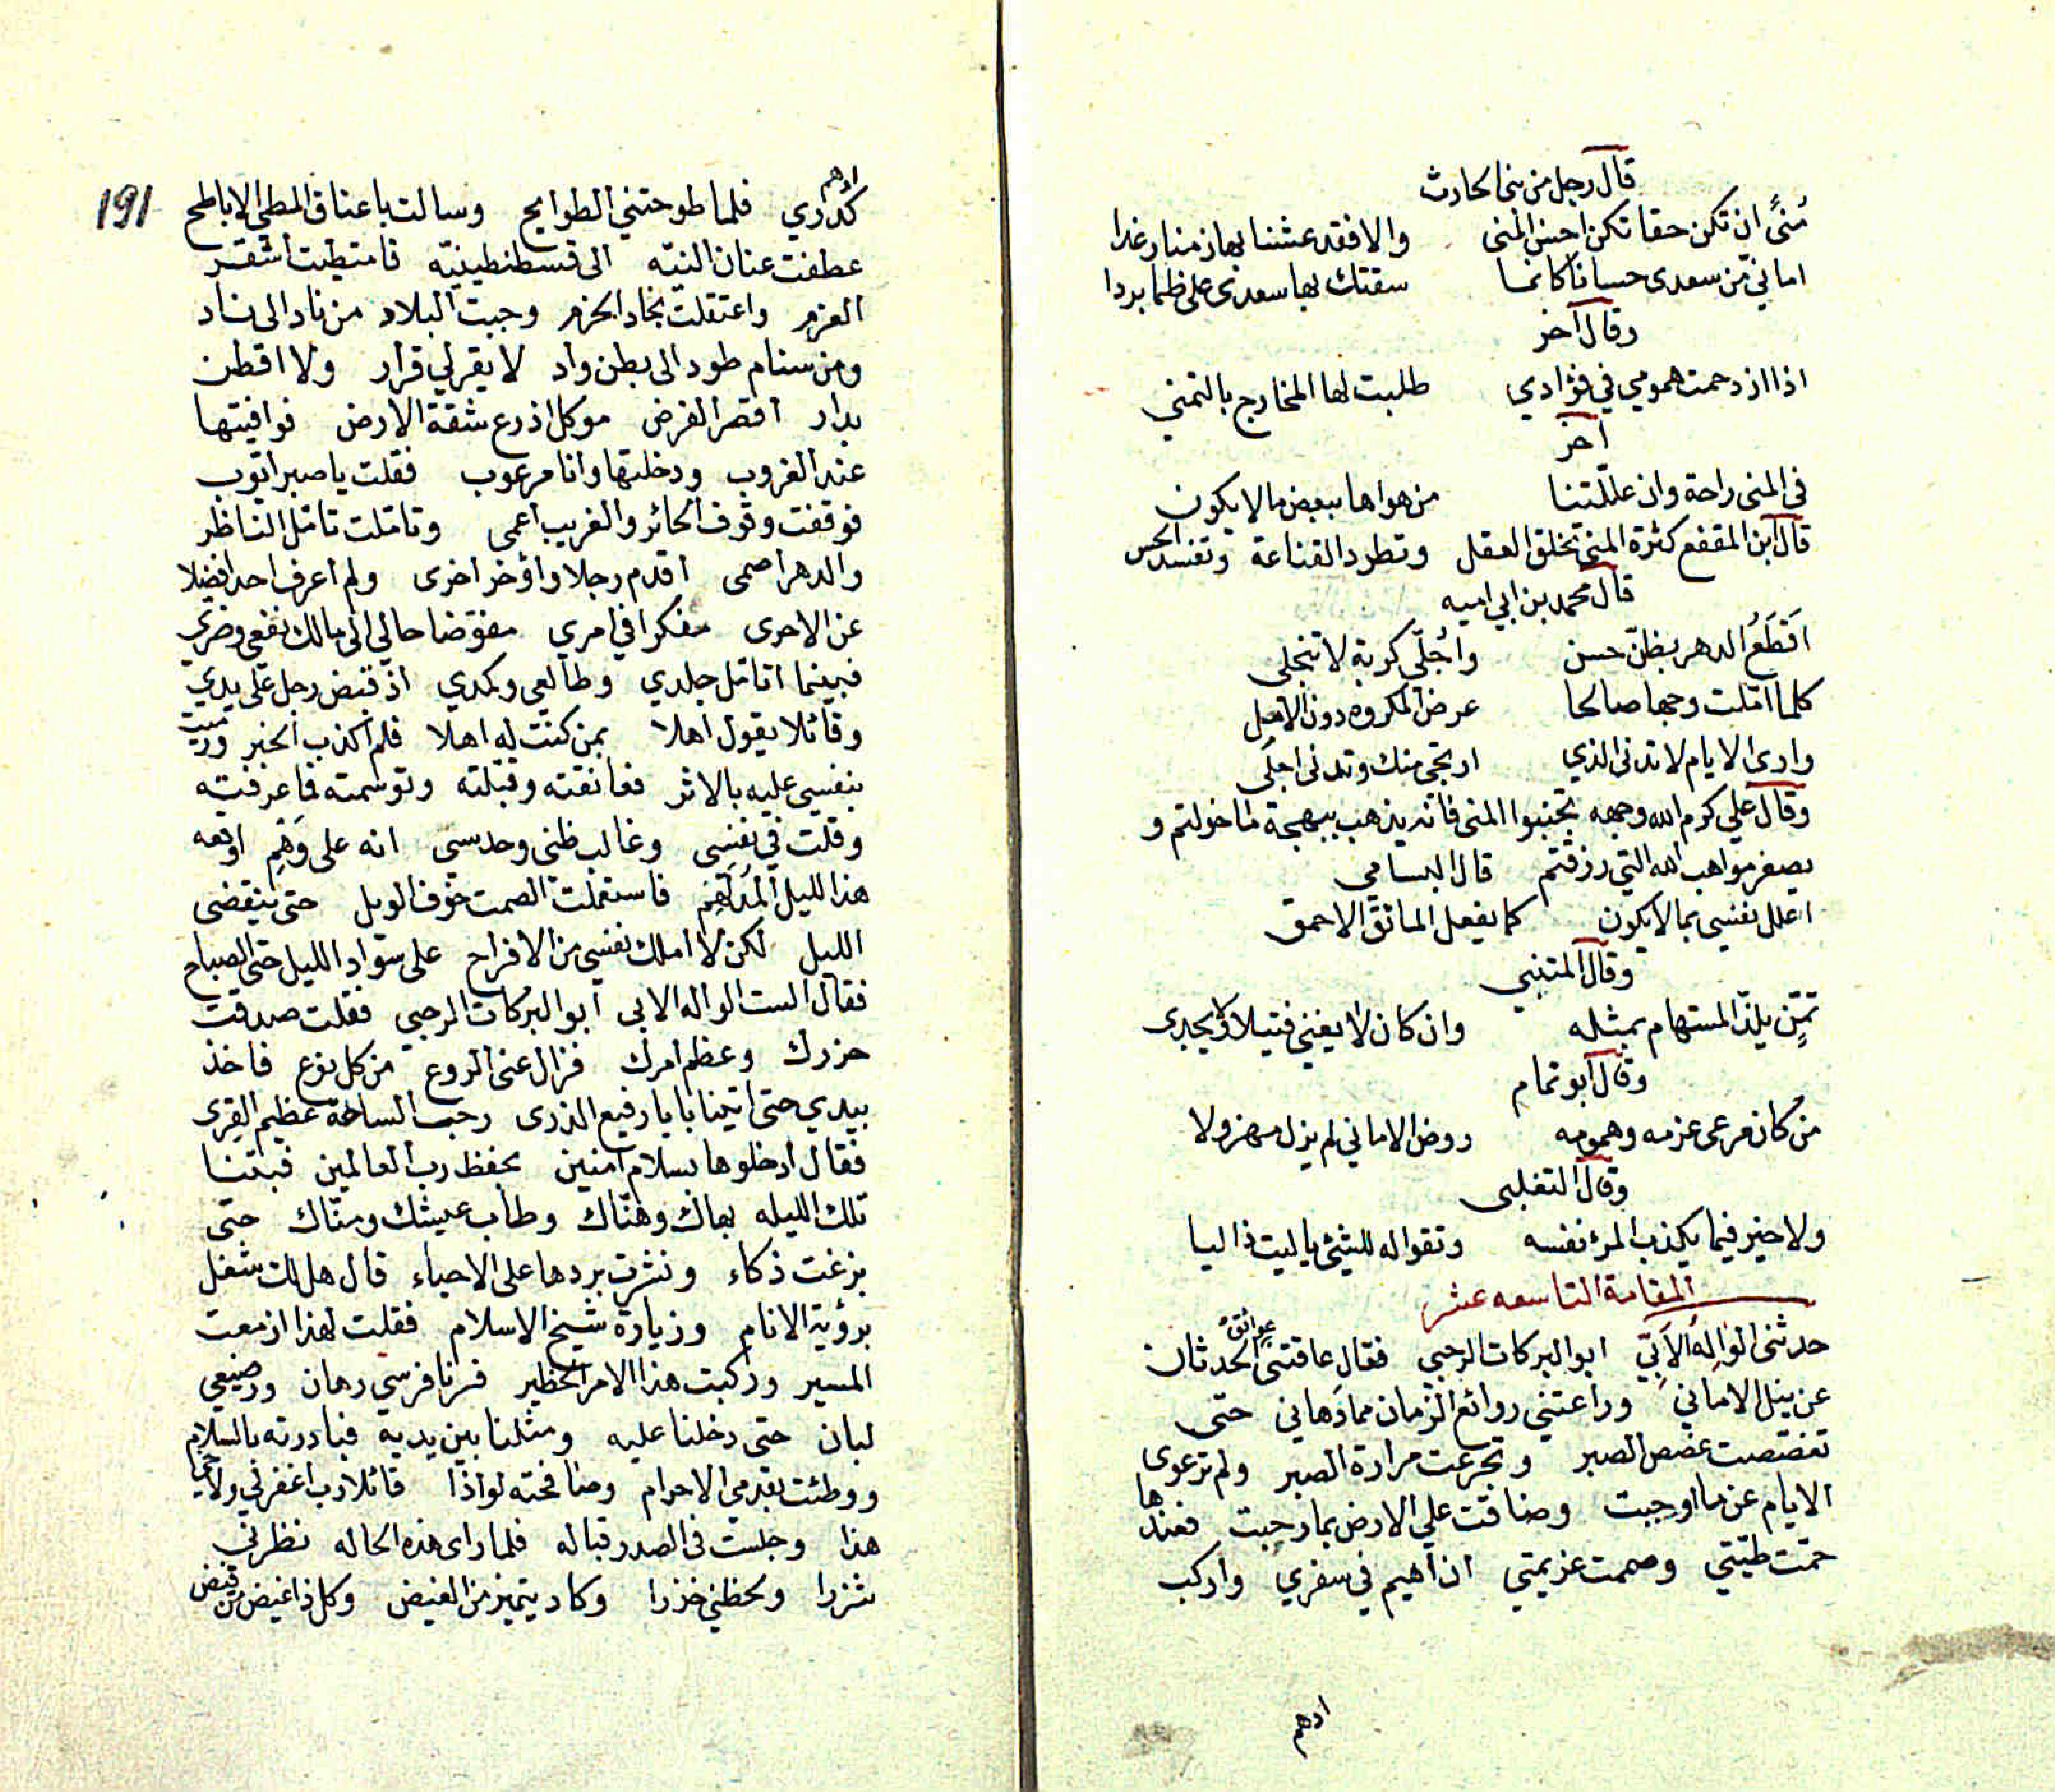 قال رجل من بني الحارث
مُنىً ان تكن حقا تكن احسن المنى والا فقد عشنا بها زمنا رغدا
اماني من سعدى حسانا كانما سقتك بها سعدى على ظما بردا
وقال آخر
اذا ازدحمت همومي في فؤادي طلبت لها المخارج بالتمني
آخر
في المنى راحة وان عللتنا من هواها ببعض ما لا يكون
قال ابن المقفع كثرة المنى تخلق العقل وتطرد القناعة وتفسد الحس
قال محمد بن ابي اميه
اقطَعُ الدهر بظنّ حسن واُجلّي كربة لا تنجلي
كلما امّلت وجها صالحا عرض المكروه دون الامل
وارى الايام لا تدني الذي ارتجي منك وتدني اجلي
وقال علي كرم الله وجهه تجنبوا المنى فانه يذهب ببهجة ما خولتم و
يصغر مواهب الله التي رزقتم قال البسامي
اعلل نفسي بما لا يكون كما يفعل المائق الاحمق
وقال المتنبي
تمنٍّ يلذّ المستهام بمثله وان كان لا يغني فتيلا ولا يجدى
وقال ابو تمام
من كان مرعى عزمه وهمومه روض الاماني لم يزل مهزولا
وقال التغلبى
ولا خير فيما يكذب المرء نفسه وتقواله للشئ يا ليت ذا ليا
المقامة التاسعه عشر
حدثني الوالِه الاَبِّي ابو البركات الرحبي فقال عاقتني عوائق الحدثان
عن نيل الاماني وراعتني روائع الزمان مما دهاني حتى
تغصّصت غصص الصبر وتجرعت مرارة الصبر ولم ترعوى
الايام عن ما اوجبت وضاقت علي الارض بما رحبت فعندها
حمّت طيّتي وصممت عزيمتي ان اهيم في سفري واركب
ادهم
191
ادهم
كدّاري فلما طوحتني الطوايح وسالت باعناق المطي الاباطح
عطفت عنان النيّه الى قسطنطينيّه فامتطيت اشقر
العزم واعتقلت بجاد الحزم وجبت البلاد من ناد الى ناد
ومن سنام طود الى بطن واد لا يقر لي قرار ولا اقطن
بدار اقصر الغرض موكل اذرع شقة الارض فوافيتها
عند الغروب ودخلتها وانا مرعوب فقلت يا صبر ايوب
فوقفت وقوف الحائر والغريب اعمى وتاملت تامّل الناظر
والدهر اصمى اقدم رجلا واؤخر اخرى ولم اعرف احدا فضلا
عن الاحرى مفكرا في امري مفوّضا حالي الى مالك نفعي وضري
فبينما اتامّل جلدي وطالعي وكمدي اذ قبض رجل على يدي
وقائلا يقول اهلا بمن كنت له اهلا فلم اكذب الخبر ورميت
بنفسي عليه بالاثر فعانقته وقبّلته وتوسّمته فما عرفته
وقلت في نفسي وغالب ظني وحدسي انه على وَهْمٍ اوقعه
هذا الليل المُدلَهِم فاستعملت الصمت خوف الويل حتى ينقضى
الليل لكن لا املك نفسي من الافراح على سواد الليل حتى الصباح
فقال الست الواله الابي ابو البركات الرحبي فقلت صدقت
حزرك وعظم امرك فزال عني الروع من كل نوع فاخذ
بيدي حتى اتينا بابا رفيع الذرى رحب الساحة عظيم القرى
فقال ادخلوها بسلام امنين بحفظ رب العالمين فبتنا
تلك الليله بهاك وهنّاك وطاب عيشك ومنّاك حتى
بزغت ذكاء ونشرت بردها على الاحياء قال هل لك شغل
برؤية الانام وزيارة شيخ الاسلام فقلت لهذا ازمعت
المسير وركبت هذا الامر الخطير فسرنا فرسي رهان ورضيعي
لبان حتى دخلنا عليه ومثلنا بين يديه فبادرته بالسلام
ووطئت بقدمي الاحرام وصافحته لواذا قائلا رب اغفر لي ولاخي
هذا وجلست في الصدر قباله فلما راى هذه الحاله نظرني
شزرا ولحظني خزرا وكاد يتميز من الغيض وكل ذا غيض من فيض